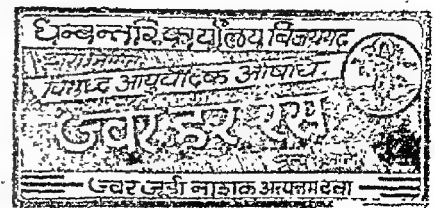 धन्वन्तरि कार्यालय विजयगढ़
विशुद्ध आयुर्वेदिक औषधि
ज्वर हर रस
ज्वर जूडी नाशक अत्युत्तम दवा